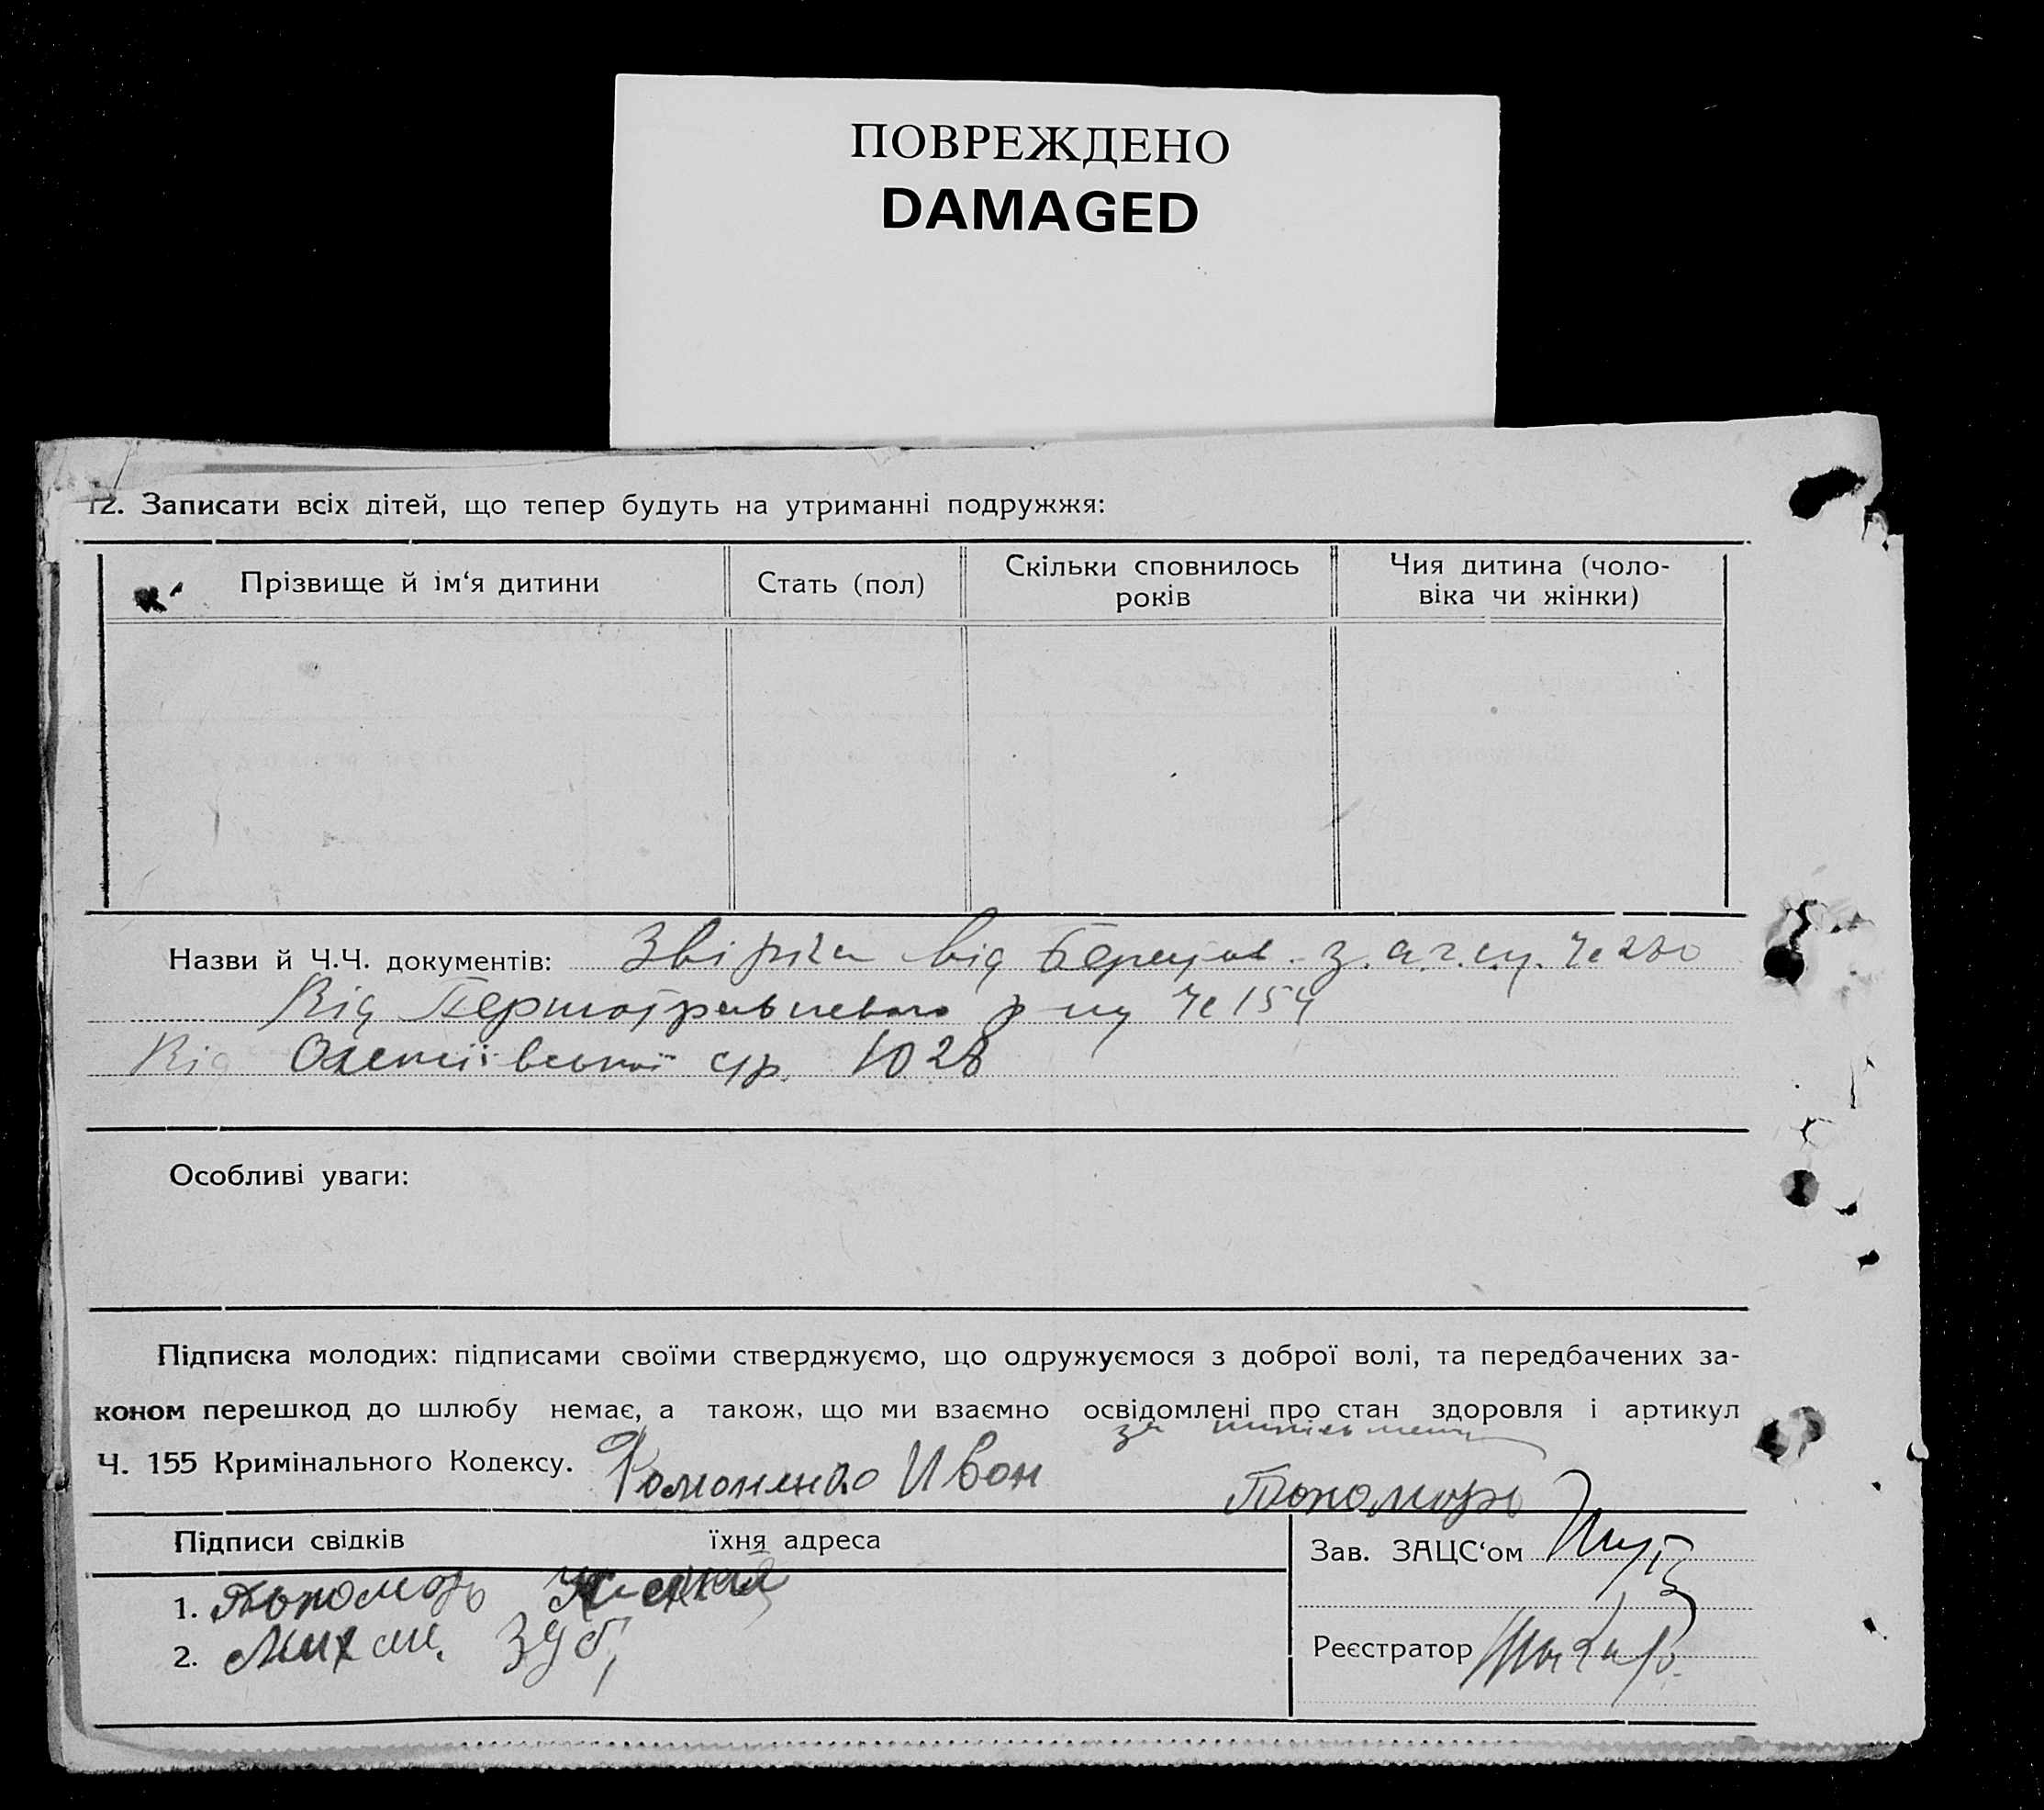 ПОВРЕЖДЕНО
DAMAGED
12. Записати всіх дітей, що тепер будуть на утриманні подружжя:
Прізвище й ім‘я дитини
Стать (пол)
Скільки сповнилось
років
Чия дитина (чоло-
віка чи жінки)
Назви й Ч.Ч. документів: від з.а.г.су. Че
Від Че 154
Від Олексіївської с/р. 1028
Особливі уваги:
Підписка молодих: підписами своїми стверджуємо, що одружуємося з доброї волі, та передбачених за-
коном перешкод до шлюбу немає, а також, що ми взаємно освідомлені про стан здоровля і артикул
за
Ч. 155 Кримінального Кодексу. Фомоненко Ивон
Пономорь
Підписи свідків
їхня адреса
1. Пономорь
2. Зуб
Зав. ЗАЦС‘ом
Реєстратор